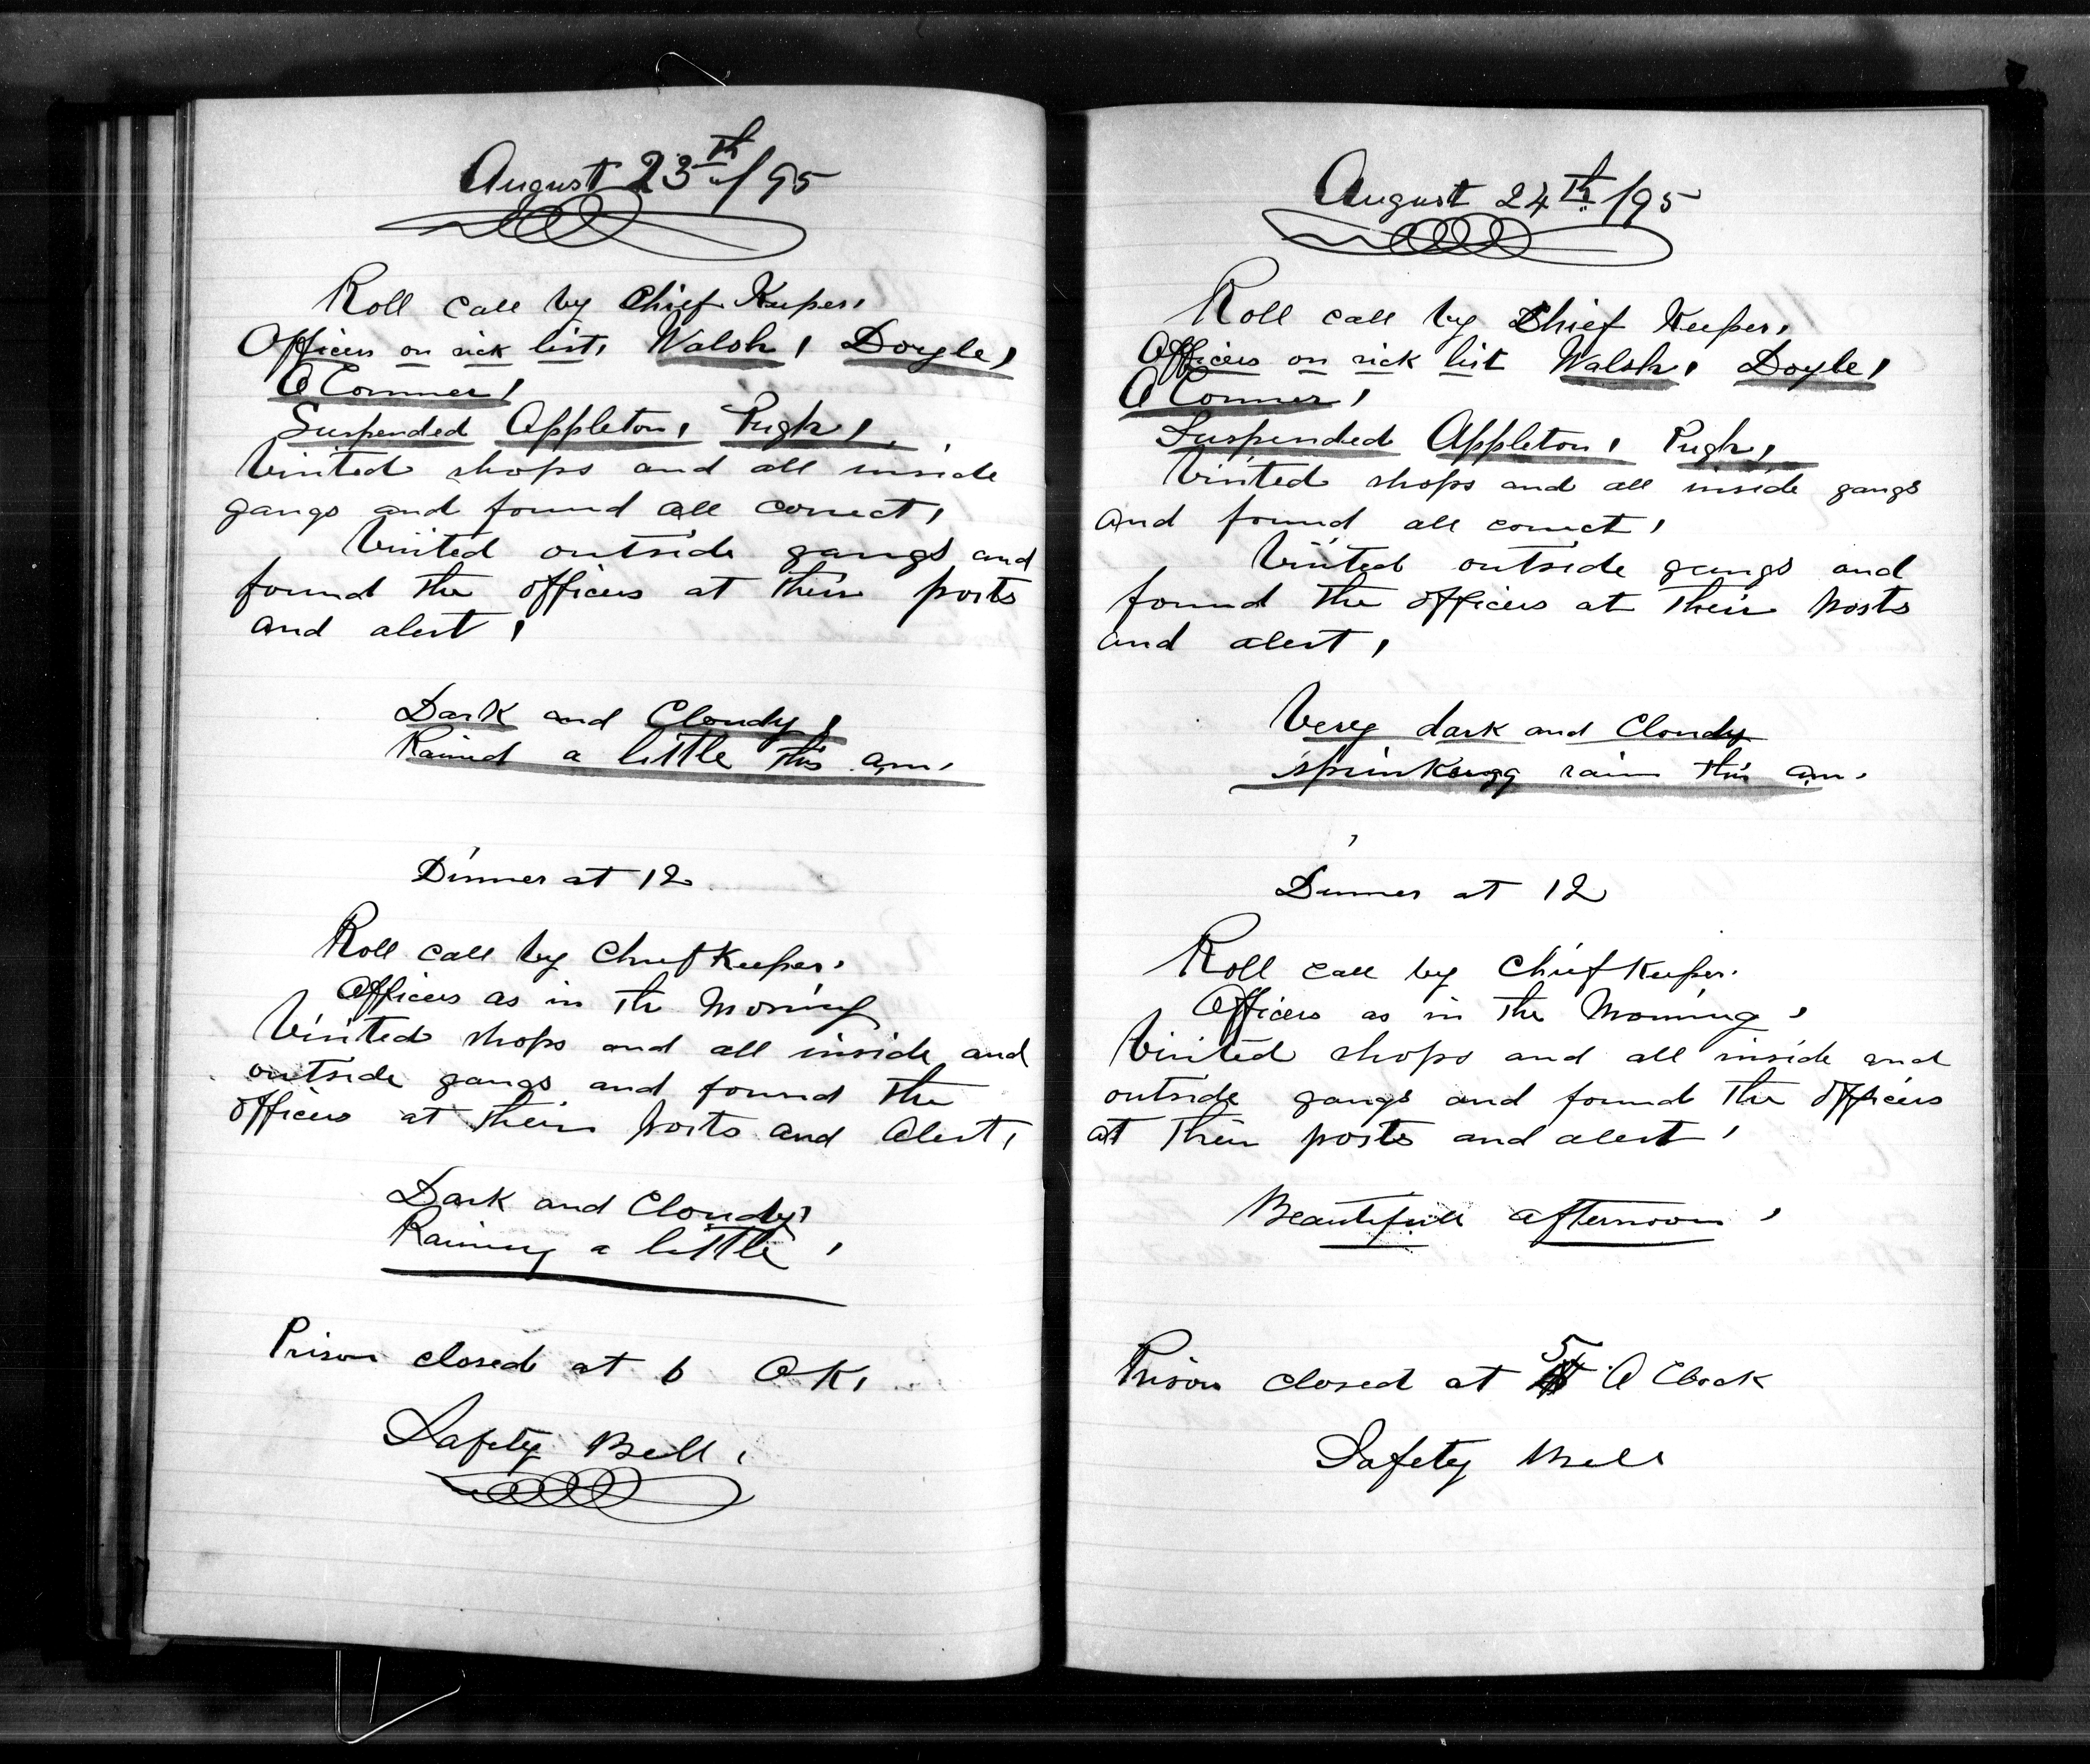 August 23th/95
Roll call by Chief Keeper,
Officers on sick list, Walsh, Doyle,
O Conner,
Suspended Appleton, Pugh,
Visited shops and all inside
gangs and found all correct,
Visited outside gangs and
found the officers at their posts
and alert,
Dark and Cloudy,
Rained a little this am,
Dinner at 12
Roll call by Chief Keeper.
Officers as in the Morning
Visited shops and all inside and
outside gangs and found the
officers at their posts and alert,
Dark and Cloudy,
Raining a little,
Prison closed at 6 OK,
Safety Bell,
August 24th/95
Roll call by Chief Keeper,
Officers on sick list Walsh, Doyle,
O Conner,
Suspended Appleton, Pugh,
Visited shops and all inside gangs
and found all correct,
Visited outside gangs and
found the officers at their posts
and alert,
Very dark and Cloudy
rain this am.
Dinner at 12
Roll call by Chief Keeper.
Officers as in the Morning,
Visited shops and all inside and
outside gangs and found the officers
at their posts and alert,
Beautifull afternoon,
Prison closed at 5 O Clock
Safety Bell